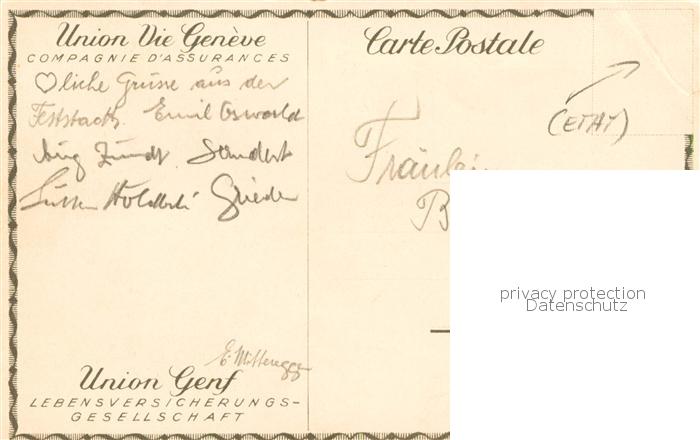 Union Vie Genève
COMPAGNIE D'ASSURANCES
♡liche Grüsse aus der
Feststadt. Emil Oswald
Aug Zundt
Grieder
E. Mitteregger
Union Genf
LEBENSVERSICHERUNGS-
GESELLSCHAFT
Carte Postale
(ETAT)
Fräulein
B
privacy protection
Datenschutz